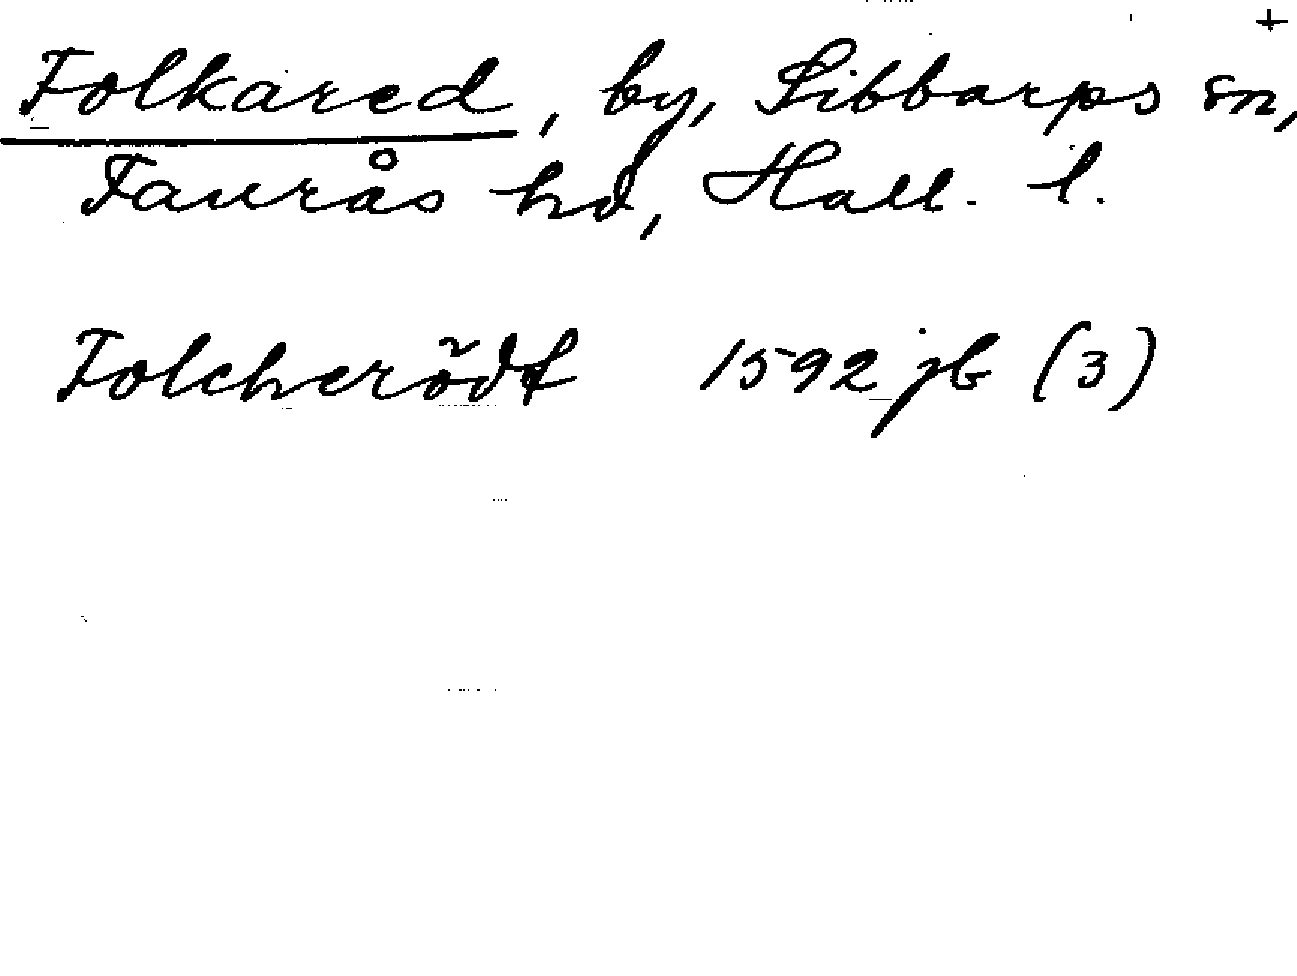 +
Folkared, by, Sibbarps sn,
Faurås hd, Hall. l.
Folcherödt 1592 jb (3)